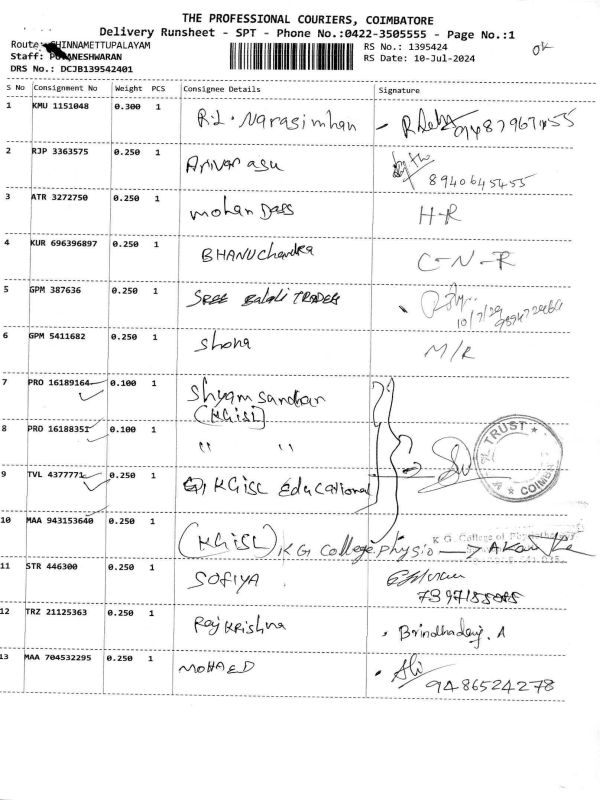 THE PROFESSIONAL COURIERS, COIMBATORE
Delivery Runsheet - SPT - Phone No.:0422-3505555 - Page No.:1
Route: CHINNAMETTUPALAYAM
RS No.: 1395424
OK
Staff:
RS Date: 10-Jul-2024
DRS No.: DCJB139542401
S No Consignment No Weight PCS Consignee Details Signature
1 KMU 1151048 0.300 1 R.L. Narasimhan
2 RJP 3363575 0.250 1 Arivarasu
8940645455
3 ATR 3272750 0.250 1 mohan Dass H-R
4 KUR 696396897 0.250 1 BHANU Chandra C-N-R
5 GPM 387636 0.250 1 SREE Balali TRADES
6 GPM 5411682 0.250 1 Shona M/R
7 PRO 16189164 0.100 1 Shyam sandran
(KGiSL)
8 PRO 16188351 0.100 1 " "
TRUST
COIMB
9 TVL 4377771 0.250 1 KGiSL Educational
10 MAA 943153640 0.250 1 (KGiSL) KG College. Physio
K G. College of Physiotherapy
11 STR 446300 0.250 1 SOFIYA
12 TRZ 21125363 0.250 1 Raj Krishna Brindhadevi. A
13 MAA 704532295 0.250 1 MOHAED Ali
9486524278